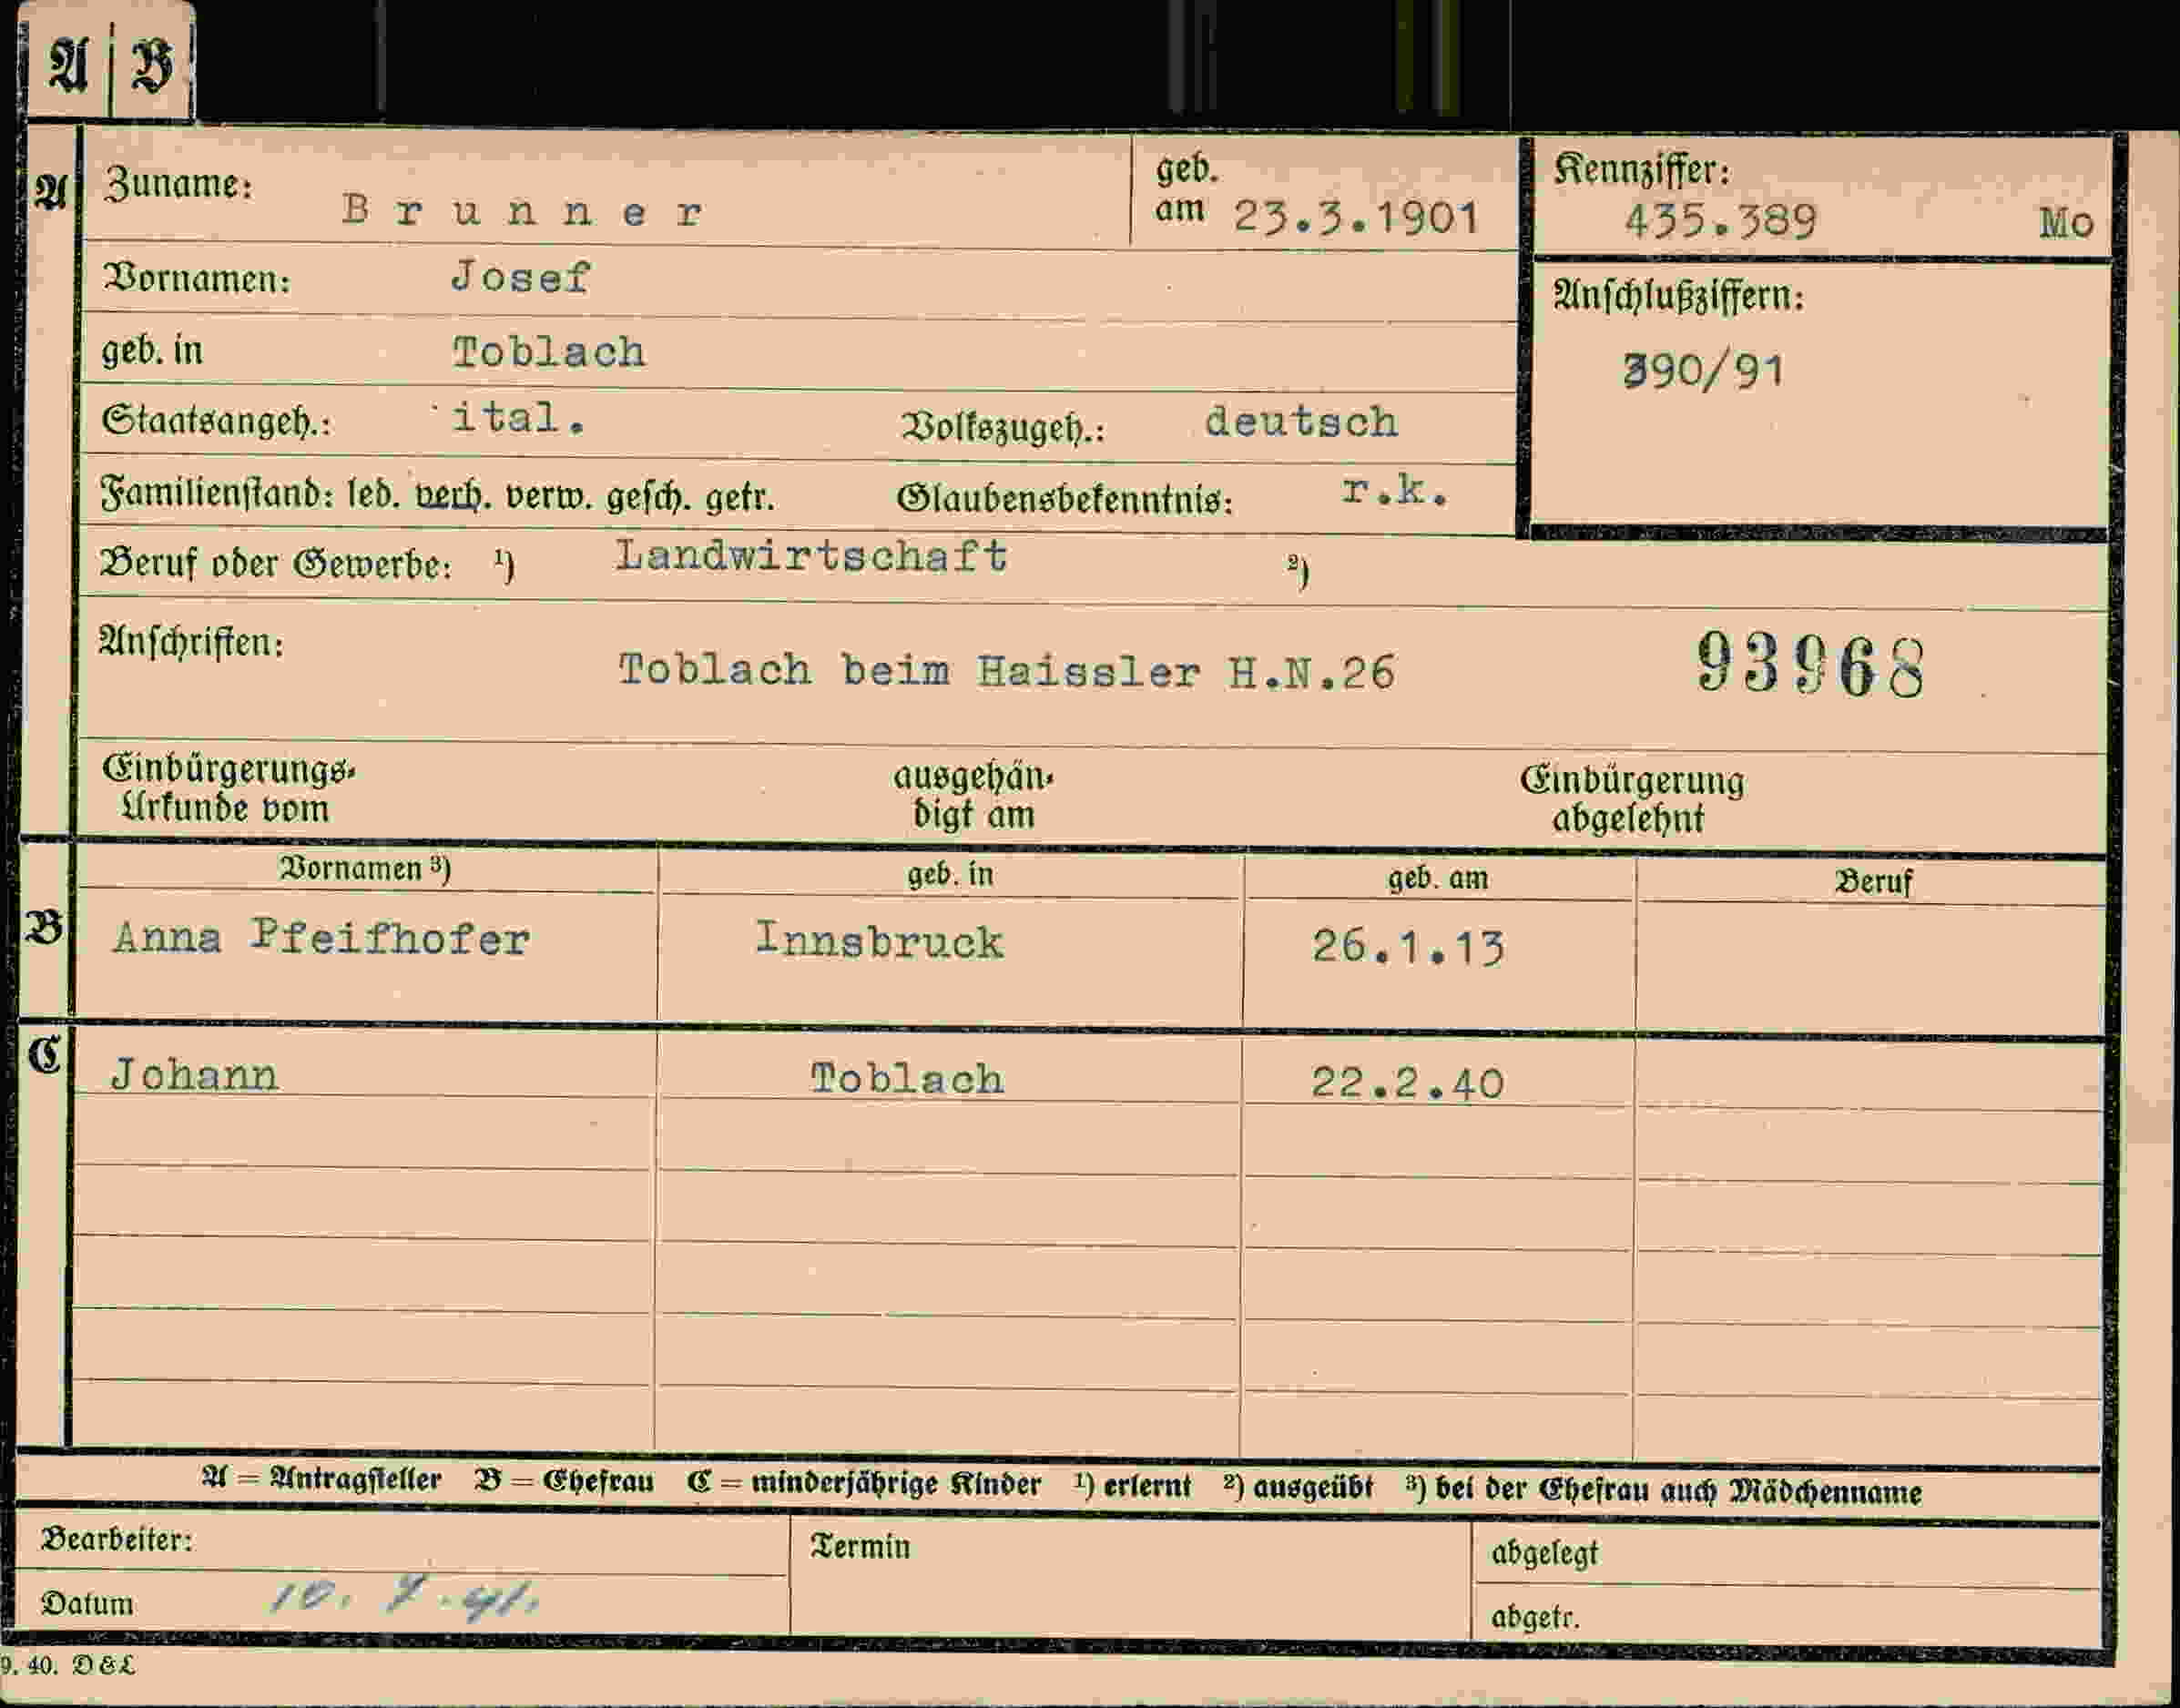 A | B
A
Zuname: Brunner geb. am 23.3.1901
Kennziffer: 435.389 Mo
Vornamen: Josef
Anschlußziffern:
390/91
geb. in Toblach
Staatsangeh.: ital. Volkszugeh.: deutsch
Familienstand: led. verh. verw. gesch. getr. Glaubensbekenntnis: r.k.
Beruf oder Gewerbe: ¹) Landwirtschaft ²)
Anschriften: Toblach beim Haissler H.N.26 93968
Einbürgerungs- Urkunde vom ausgehän- digt am Einbürgerung abgelehnt
Vornamen ³) geb. in geb. am Beruf
B Anna Pfeifhofer Innsbruck 26.1.13
C Johann Toblach 22.2.40
A = Antragsteller B = Ehefrau C = minderjährige Kinder ¹) erlernt ²) ausgeübt ³) bei der Ehefrau auch Mädchenname
Bearbeiter: Termin abgelegt
Datum 10. 7. 41. abgetr.
9. 40. D & L